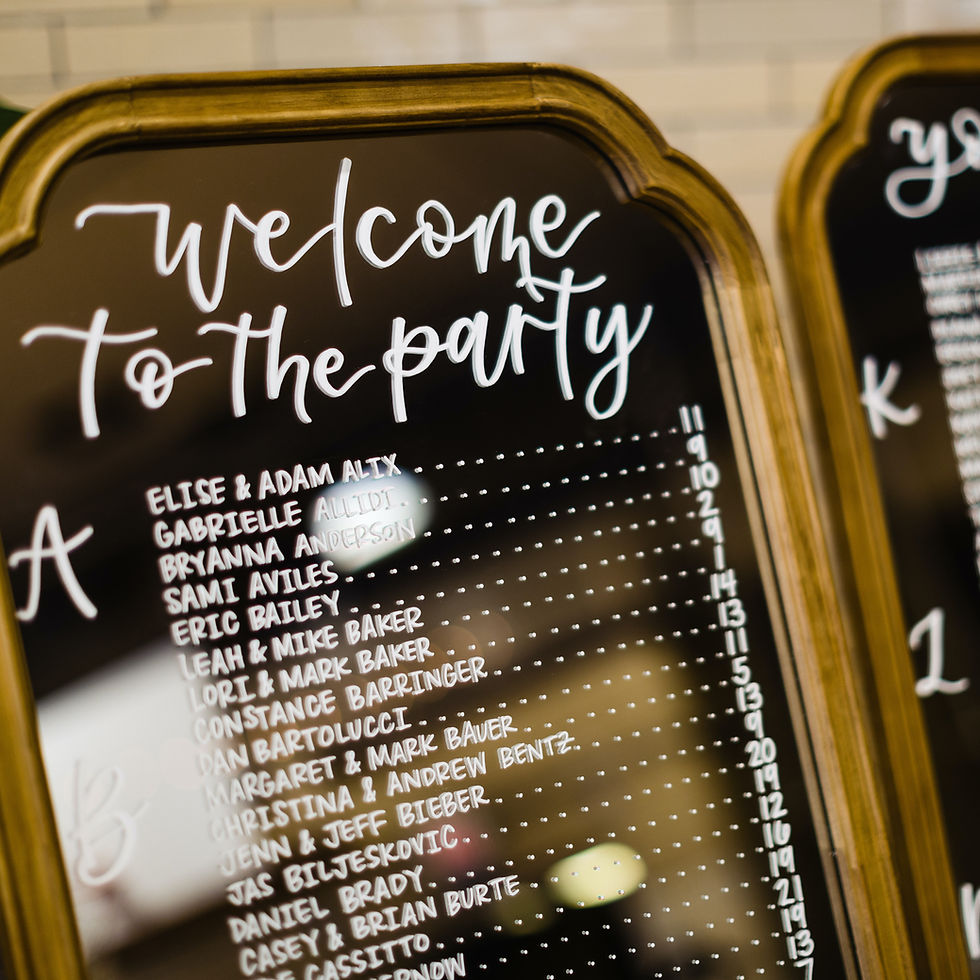 welcome
to the party
A
ELISE & ADAM ALIX 11
GABRIELLE ALLIDI 9
BRYANNA ANDERSON 10
SAMI AVILES 2
ERIC BAILEY 9
LEAH & MIKE BAKER 1
LORI & MARK BAKER 14
CONSTANCE BARRINGER 13
DAN BARTOLUCCI 11
B
MARGARET & MARK BAUER 5
CHRISTINA & ANDREW BENTZ 13
JENN & JEFF BIEBER 9
JAS BILJESKOVIC 20
DANIEL BRADY 19
CASEY & BRIAN BURTE 12
CASSITTO 16
19
21
19
13
7
K
L